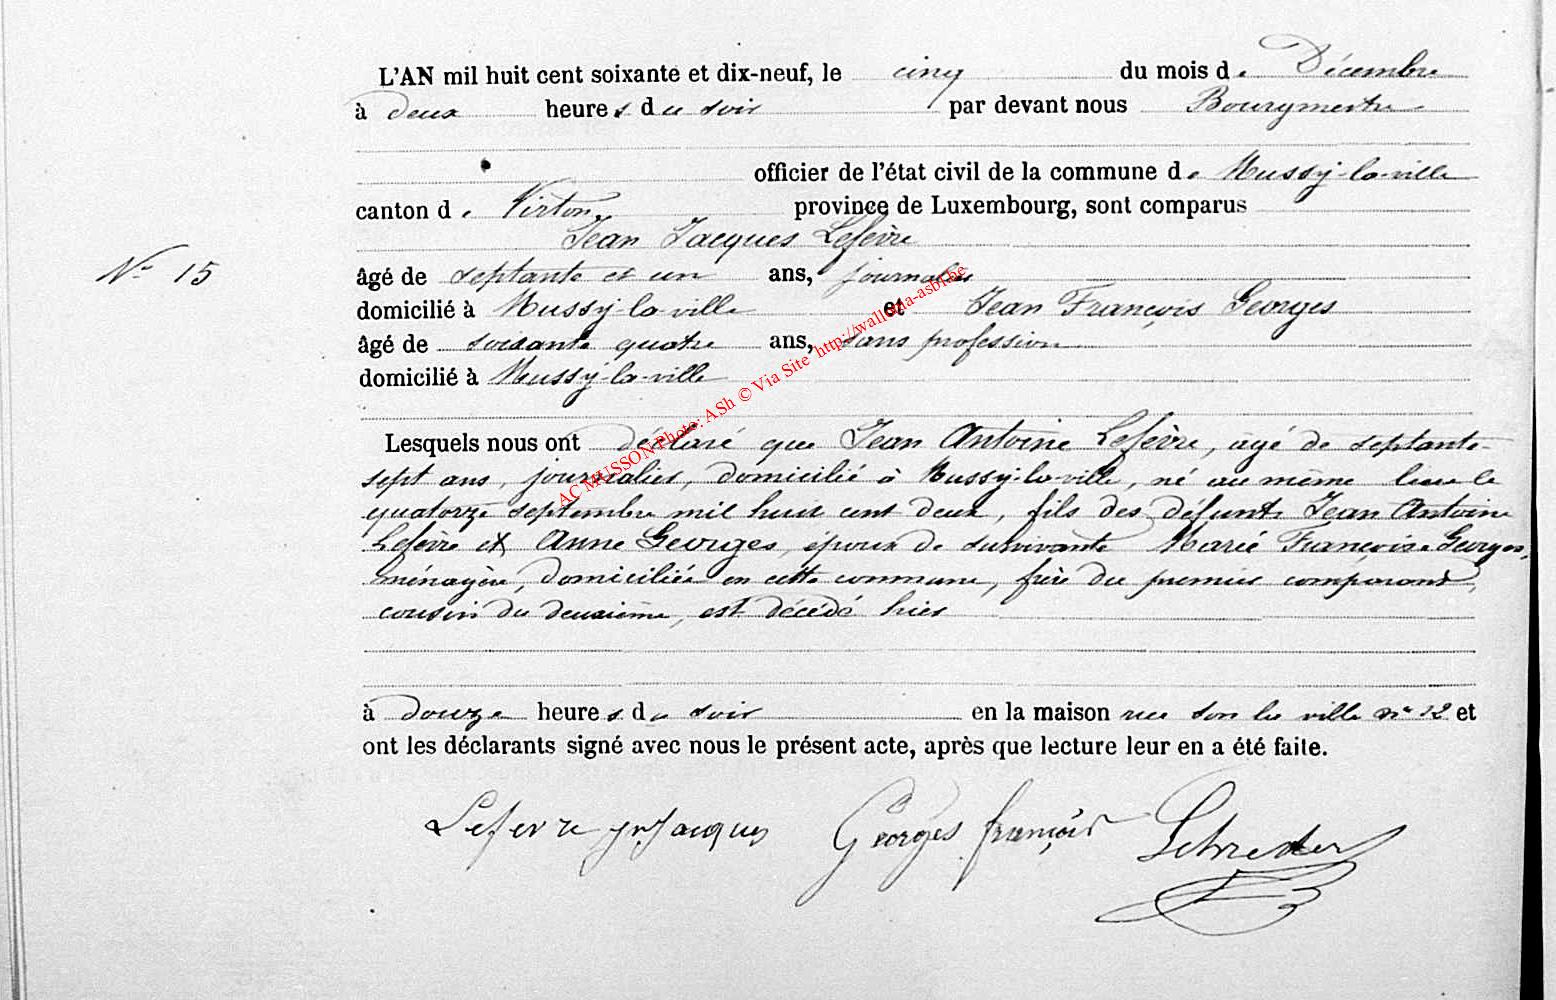 L'AN mil huit cent soixante et dix-neuf, le cinq du mois de Décembre
à deux heures du soir par devant nous Bourgmestre
officier de l'état civil de la commune de Mussy-la-ville
canton de Virton province de Luxembourg, sont comparus
Jean Jacques Lefèvre
N° 15
âgé de septante et un ans, journalier
domicilié à Mussy-la-ville et Jean François Georges
âgé de soixante quatre ans, sans profession
domicilié à Mussy-la-ville
Lesquels nous ont déclaré que Jean Antoine Lefèvre, âgé de septante-
sept ans, journalier, domicilié à Mussy-la-ville, né au même lieu le
quatorze septembre mil huit cent deux, fils des défunts Jean Antoine
Lefèvre et Anne Georges, époux de survivante Marie Françoise Georges,
ménagère, domiciliée en cette commune, frère du premier comparant,
cousin du deuxième, est décédé hier
à douze heures du soir en la maison rue ville n° et
ont les déclarants signé avec nous le présent acte, après que lecture leur en a été faite.
Lefevre Jn Jacques Georges françois
AC MUSSON Photo: ASh © Via Site http://wallonia-asbl.be